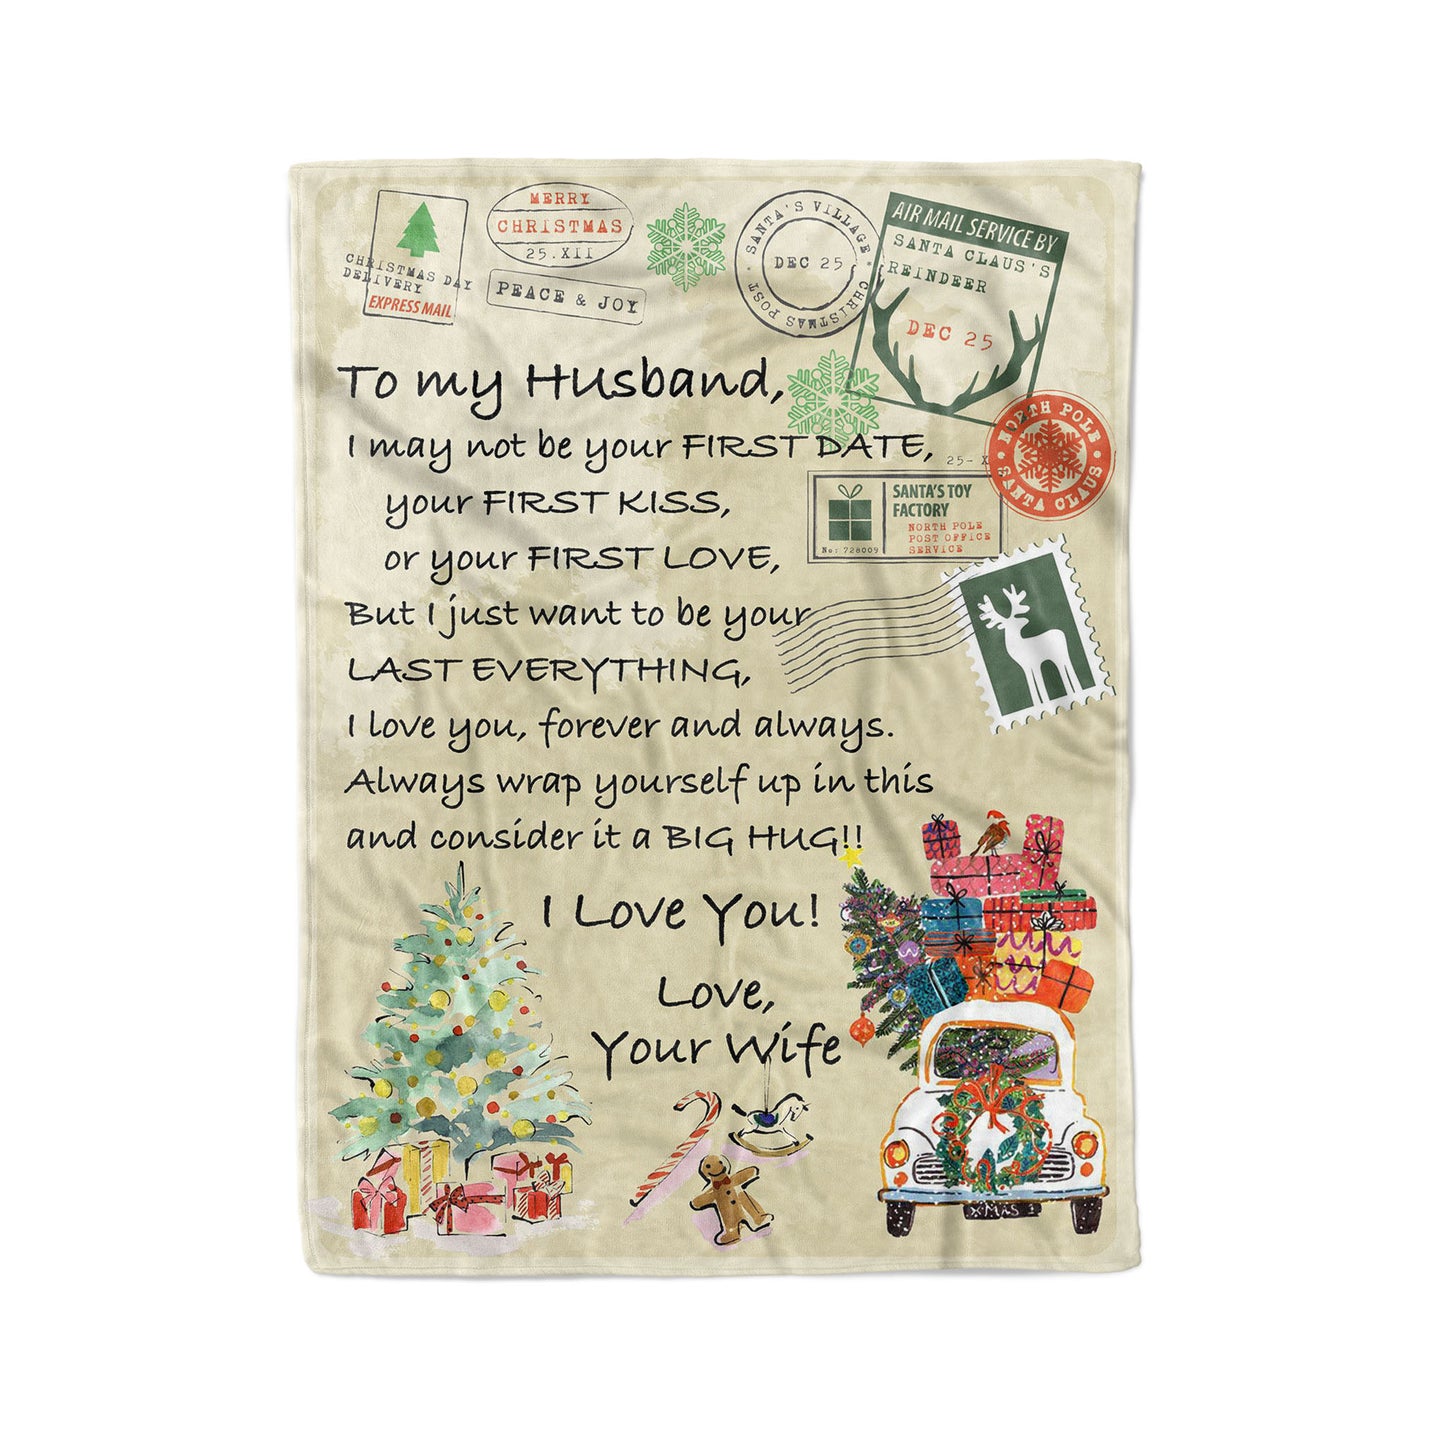 MERRY
CHRISTMAS
25.XII
CHRISTMAS DAY
DELIVERY
EXPRESS MAIL
PEACE & JOY
SANTA'S VILLAGE
DEC 25
CHRISTMAS POST
AIR MAIL SERVICE BY
SANTA CLAUS'S
REINDEER
DEC 25
NORTH POLE
SANTA CLAUS
To my Husband,
I may not be your FIRST DATE,
25- X
your FIRST KISS,
SANTA'S TOY
FACTORY
NORTH POLE
POST OFFICE
SERVICE
No: 728009
or your FIRST LOVE,
But I just want to be your
LAST EVERYTHING,
I love you, forever and always.
Always wrap yourself up in this
and consider it a BIG HUG!!
I Love You!
Love,
Your Wife
XMAS 1